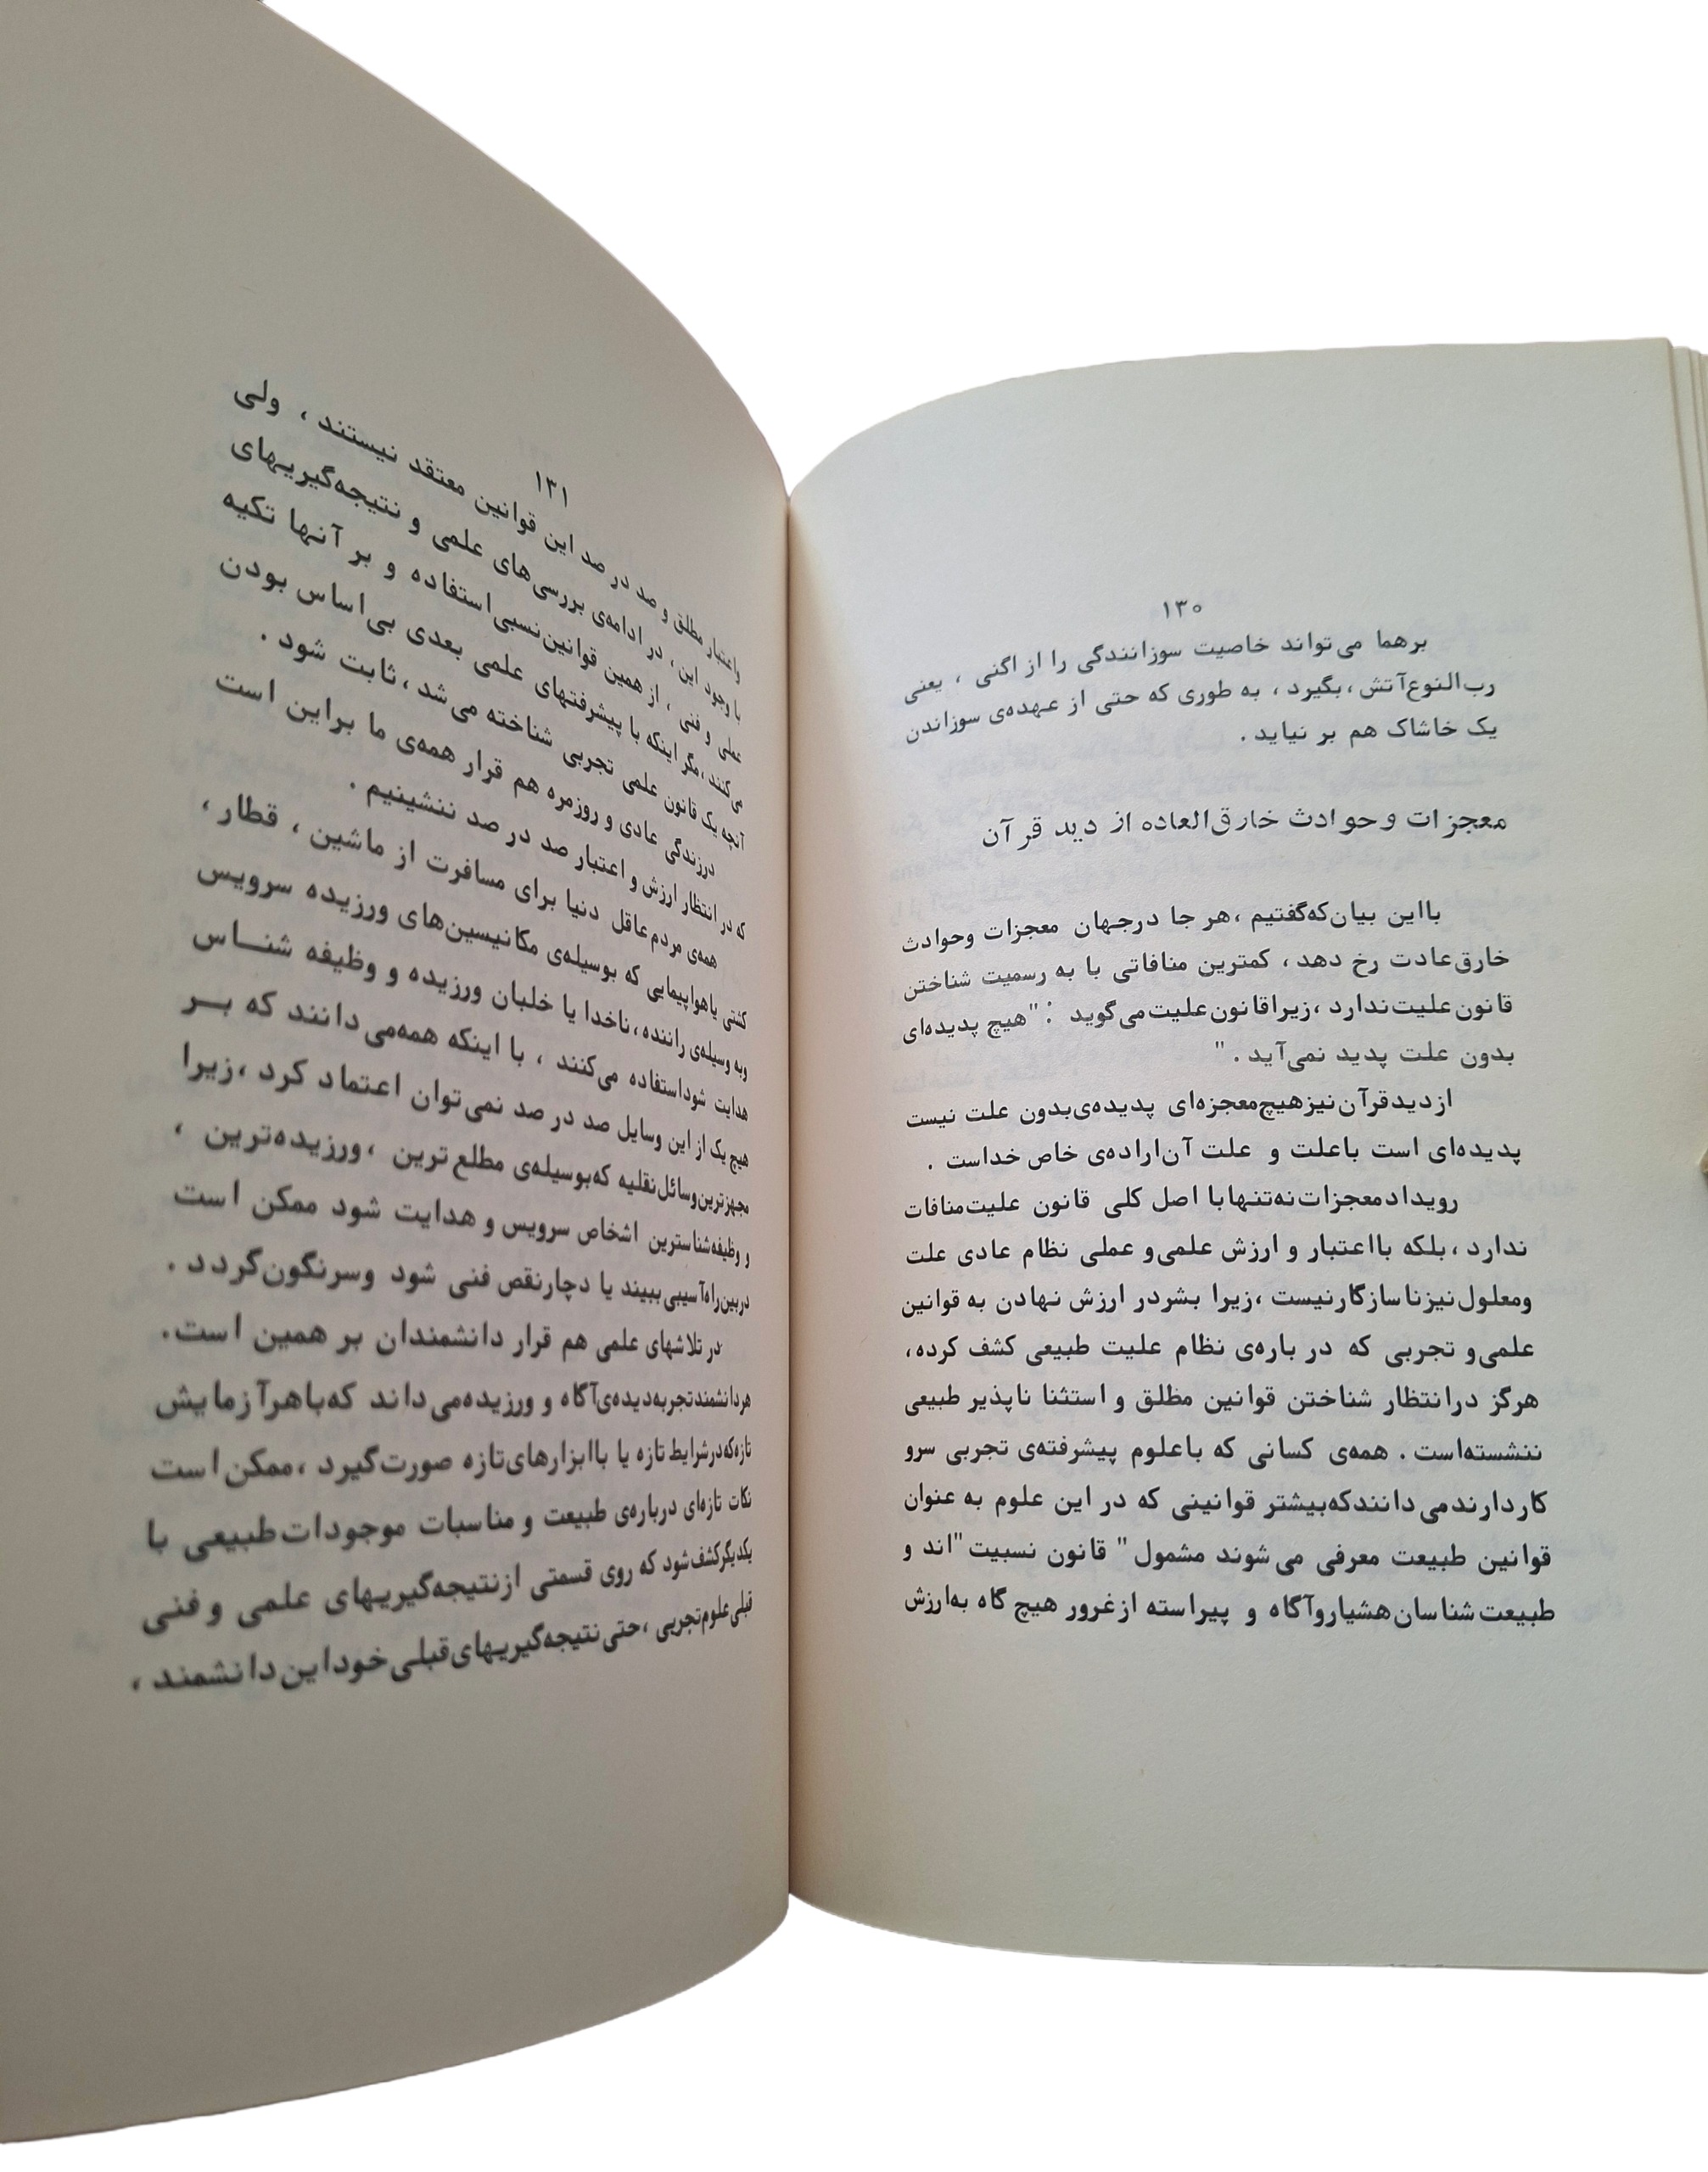 ۱۳۰
برهما می‌تواند خاصیت سوزانندگی را از اگنی ، یعنی
رب‌النوع‌آتش ،بگیرد ، به طوری که حتی از عهده‌ی سوزاندن
یک خاشاک هم بر نیاید .
معجزات وحوادث خارق‌العاده از دید قرآن
بااین بیان‌که‌گفتیم ،هر جا درجهان معجزات وحوادث
خارق‌عادت رخ دهد ، کمترین منافاتی با به رسمیت شناختن
قانون‌علیت‌ندارد ،زیراقانون‌علیت‌می‌گوید : "هیچ پدیده‌ای
بدون علت پدید نمی‌آید . "
ازدیدقرآن‌نیزهیچ‌معجزه‌ای پدیده‌ی‌بدون علت نیست
پدیده‌ای است باعلت و علت آن‌اراده‌ی خاص خداست .
رویدادمعجزات‌نه‌تنهابا اصل کلی قانون علیت‌منافات
ندارد ،بلکه بااعتبار و ارزش علمی‌و عملی نظام عادی علت
ومعلول‌نیزناسازگارنیست ،زیرا بشردر ارزش نهادن به قوانین
علمی‌و تجربی که در باره‌ی نظام علیت طبیعی کشف کرده،
هرگز درانتظار شناختن قوانین مطلق و استثنا ناپذیر طبیعی
ننشسته‌است . همه‌ی کسانی که باعلوم پیشرفته‌ی تجربی سرو
کاردارندمی‌دانندکه‌بیشتر قوانینی که در این علوم به عنوان
قوانین طبیعت معرفی می‌شوند مشمول " قانون نسبیت "اند و
طبیعت‌شناسان‌هشیاروآگاه و پیراسته ازغرور هیچ گاه به‌ارزش
۱۳۱
واعتبار مطلق و صد در صد این قوانین معتقد نیستند ، ولی
با وجود این، در ادامه‌ی بررسی‌های علمی و نتیجه‌گیریهای
عملی و فنی ، از همین قوانین‌نسبی‌استفاده و بر آنها تکیه
می‌کنند ،مگر اینکه با پیشرفتهای علمی بعدی بی‌اساس بودن
آنچه یک قانون علمی تجربی شناخته می‌شد ،ثابت شود .
درزندگی عادی و روزمره هم قرار همه‌ی ما براین است
که در انتظار ارزش و اعتبار صد در صد ننشینیم .
همه‌ی مردم عاقل دنیا برای مسافرت از ماشین ، قطار ،
کشتی یاهواپیمایی که بوسیله‌ی مکانیسین‌های ورزیده سرویس
وبه وسیله‌ی راننده ،ناخدا یا خلبان ورزیده و وظیفه شنــاس
هدایت شوداستفاده می‌کنند ، با اینکه همه‌می‌دانند که بــر
هیچ یک از این وسایل صد در صد نمی‌توان اعتماد کرد ،زیرا
مجهزترین‌وسائل‌نقلیه که‌بوسیله‌ی مطلع ترین ،ورزیده‌ترین ،
و وظیفه‌شناسترین اشخاص سرویس و هدایت شود ممکن است
دربین‌راه‌آسیبی‌ببیند یا دچارنقص فنی شود وسرنگون‌گردد .
در تلاشهای علمی هم قرار دانشمندان بر همین است.
هردانشمندتجربه‌دیده‌ی‌آگاه و ورزیده‌می‌داند که‌باهرآزمایش
تازه‌که‌درشرایط تازه یا باابزارهای‌تازه صورت‌گیرد ،ممکن‌است
نکات تازه‌ای درباره‌ی طبیعت و مناسبات موجودات‌طبیعی با
یکدیگرکشف‌شود که روی قسمتی ازنتیجه‌گیریهای علمی و فنی
قبلی‌علوم‌تجربی ،حتی‌نتیجه‌گیریهای‌قبلی‌خوداین‌دانشمند ،